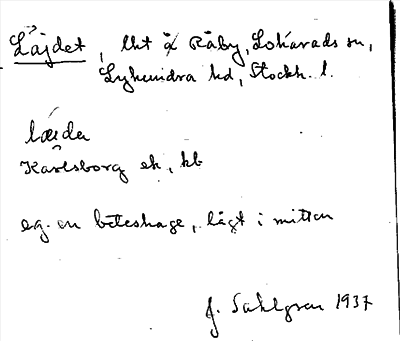 Läjdet, lht å Råby, Lohärads sn,
Lyhundra hd, Stockh. l.
læ̀idə
Karlsborg ek, kb
eg. en beteshage, lågt i mitten
J. Sahlgren 1937